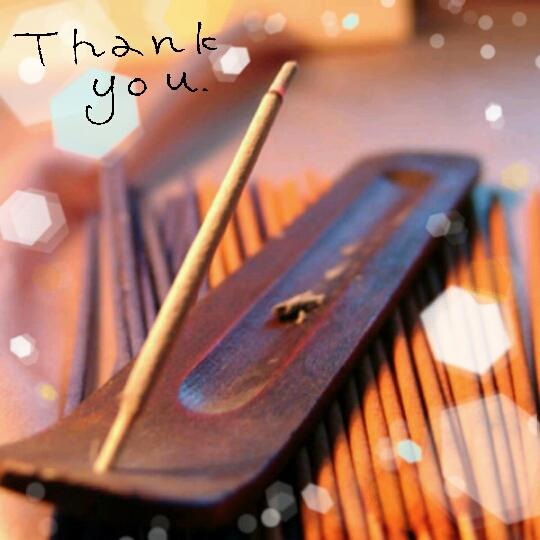 Thank
you.